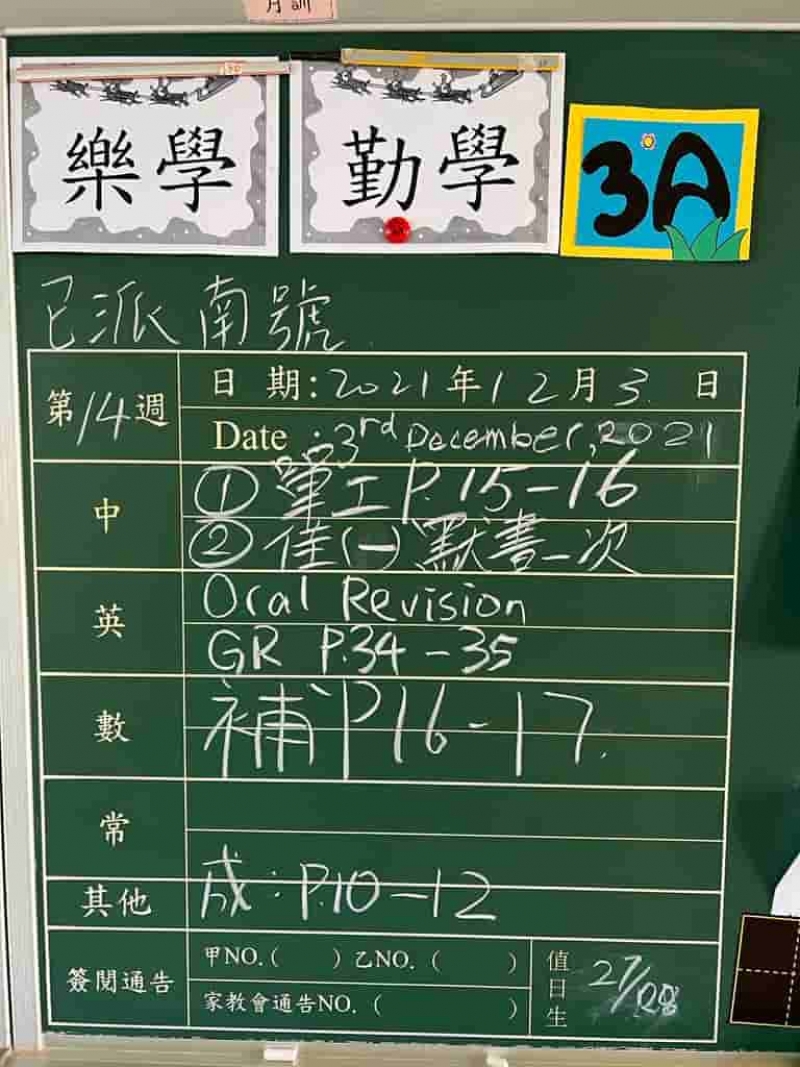 月訓
樂學
勤學
3A
已派南號
第14週
日 期:2021年12月3日
Date :3rd December, 2021
中
①單工P.15-16
②佳(一)默書一次
英
Oral Revision
GR P.34-35
數
補P16-17.
常
其他
成:P.10-12
簽閱通告
甲NO.( )乙NO.( )
家教會通告NO.( )
值日生
27/28